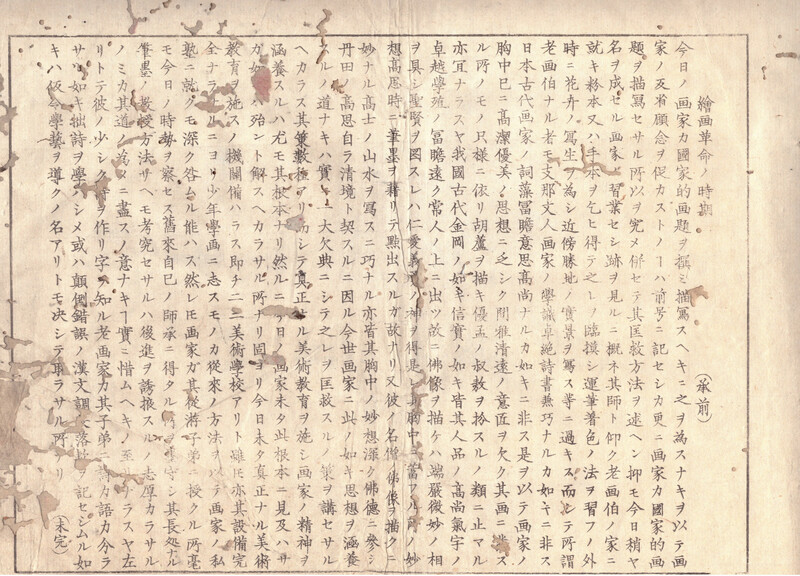 繪画革命ノ時期
（承前）
今日ノ画家カ國家的画題ヲ撰ミ描寫スヘキニ之ヲ為スナキヲ以テ画
家ノ反省顧念ヲ促カストノヿハ前号ニ記セシカ更ニ画家カ國家的画
題ヲ描寫セサル所以ヲ究メ併セテ其匡救方法ヲ述ヘン抑モ今日稍ヤ
名ヲ成セル画家ノ習業セシ跡ヲ見ルニ概ネ其師ト仰ク老画伯ノ家ニ
就キ粉本又ハ手本ヲ乞ヒ得テ之レノ臨摸シ運筆著色ノ法ヲ習フノ外
時ニ花卉ノ寫生ヲ為シ近傍勝地ノ實景ヲ寫ス等ニ過キス而シテ所謂
老画伯ナル者モ支那文人画家ノ學識卓絶詩書兼巧ナルカ如キニ非ス
日本古代画家ノ詞藻冨瞻意思高尚ナルカ如キニ非ス是ヲ以テ画家ノ
胸中巳ニ高潔優美ノ思想ニ乏シク閒雅清遠ノ意匠ヲ欠ク其画ニ
ル所ノモノ只様ニ依リ胡蘆ヲ描キ優孟ノ叔敖ヲ扮スルノ類ニ止マル
亦宜ナラスヤ我國古代金岡ノ如キ信實ノ如キ皆其人品ノ高尚氣宇ノ
卓越學殖ノ冨瞻遠ク常人ノ上ニ出ツ故ニ佛像ヲ描ケハ端嚴微妙ノ相
ヲ具シ聖賢ヲ図スレハ仁愛ノ神ヲ得是レ胸中ニ蓄フル所ノ妙
想高思時ニ筆墨ヲ藉リテ點出スルカ故ナリ又彼ノ名僧佛像ヲ描クニ
妙ナル高士ノ山水ヲ寫スニ巧ナル亦皆其胸中ノ妙想渾ク佛德ニ參シ
丹田ノ高思自ラ清境ト契スルニ因ル今世画家ニ此ノ如キ思想ヲ涵養
スルノ道ナキハ實ニ一大欠典ニシテ之レヲ匡救スルノ策ヲ講セサル
ヘカラス其策數種アリ而シテ真正ナル美術教育ヲ施シ画家ノ精神ヲ
涵養スルハ尤モ其根本ナリ然ルニ今日ノ画家未タ此根本ニ見及ハサ
カ如キハ殆ント解スヘカラサル所ナリ固ヨリ今日未タ真正ナル美術
教育ヲ施スノ機關備ハラス即チ一二美術學校アリト雖モ亦其設備完
全ナラサルニヨリ少年學画ニ志スモノカ從來ノ方法ヲ以テ画家ノ私
塾ニ就クモ深ク咎ムル能ハス然レトモ画家カ其從游子弟ニ授クル所毫
モ今日ノ時勢ヲ察セス舊來自己ノ師承ニ得タルヲ守シ其長処ナル
筆墨ノ教授方法サヘモ考究セサルハ後進ヲ誘掖スルノ志厚カラサル
ノミカ其道ノ為ニ盡スノ意ナキヿ實ニ惜ムヘキノ至リナラスヤ左
リトテ彼ノ少シク詩ヲ作リ字ヲ知ル老画家カ其子弟ニ語カ分ラ
サル如キ拙詩ヲ學ハシメ或ハ顛倒錯誤ノ漢文調ヲ記セシムル如
キハ仮令學藝ヲ導クノ名アリトモ决シテ取ラサル所ナリ
（未完）